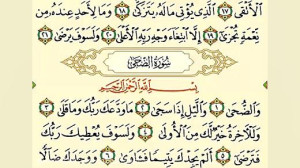 ٱلْأَتْقَى ١٧ ٱلَّذِى يُؤْتِى مَالَهُۥ يَتَزَكَّىٰ ١٨ وَمَا لِأَحَدٍ عِندَهُۥ مِن
نِّعْمَةٍ تُجْزَىٰٓ ١٩ إِلَّا ٱبْتِغَآءَ وَجْهِ رَبِّهِ ٱلْأَعْلَىٰ ٢٠ وَلَسَوْفَ يَرْضَىٰ ٢١
سُورَةُ الضُّحَىٰ
بِسْمِ ٱللَّهِ ٱلرَّحْمَٰنِ ٱلرَّحِيمِ
وَٱلضُّحَىٰ ١ وَٱلَّيْلِ إِذَا سَجَىٰ ٢ مَا وَدَّعَكَ رَبُّكَ وَمَا قَلَىٰ ٣
وَلَلْءَاخِرَةُ خَيْرٌ لَّكَ مِنَ ٱلْأُولَىٰ ٤ وَلَسَوْفَ يُعْطِيكَ رَبُّكَ
فَتَرْضَىٰٓ ٥ أَلَمْ يَجِدْكَ يَتِيمًا فَـَٔاوَىٰ ٦ وَوَجَدَكَ ضَآلًّا